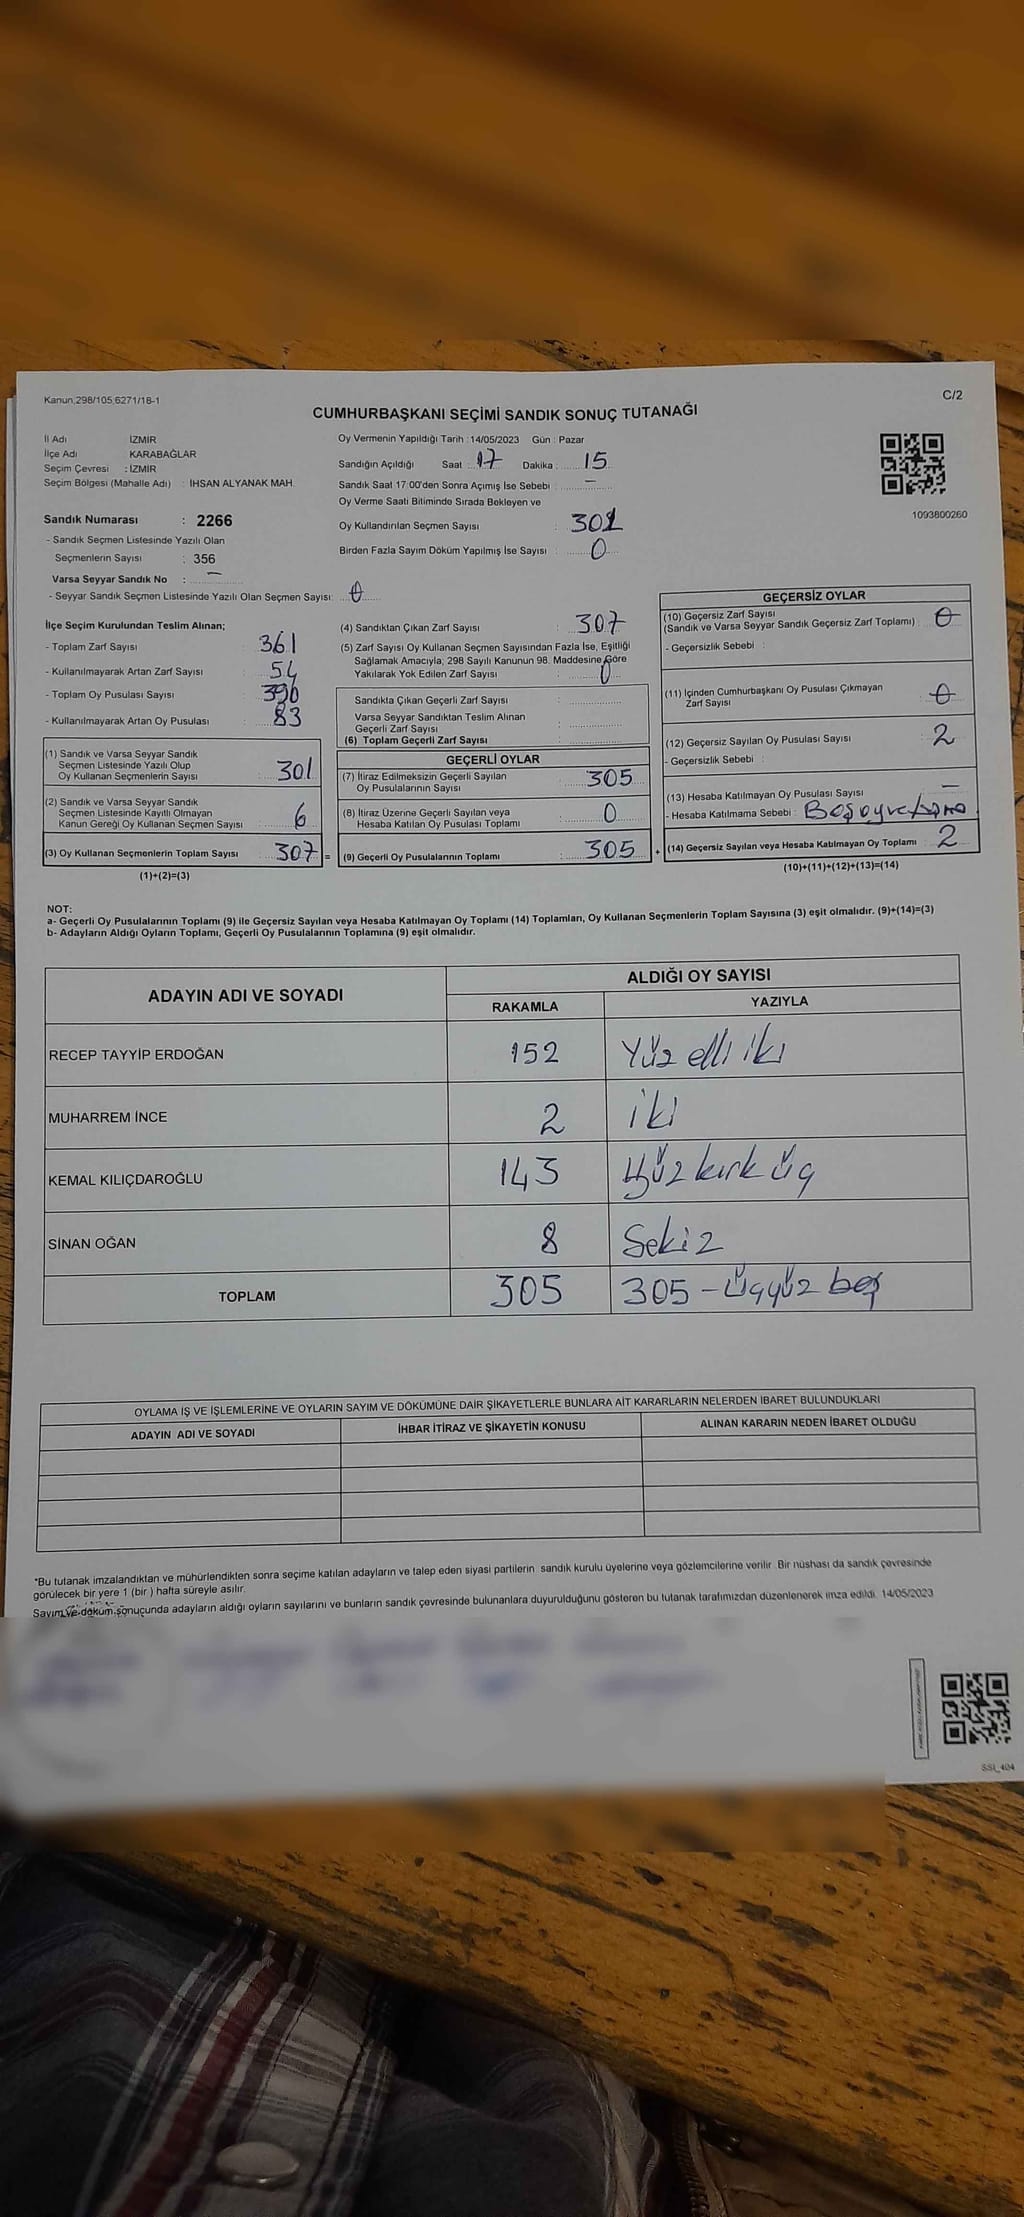 Kanun,298/105,6271/18-1
C/2
CUMHURBAŞKANI SEÇİMİ SANDIK SONUÇ TUTANAĞI
İl Adı İZMİR
İlçe Adı KARABAĞLAR
Seçim Çevresi : İZMİR
Seçim Bölgesi (Mahalle Adı) : İHSAN ALYANAK MAH.
Oy Vermenin Yapıldığı Tarih : 14/05/2023 Gün : Pazar
Sandığın Açıldığı Saat : 17 Dakika : 15
Sandık Saat 17:00'den Sonra Açımış İse Sebebi : -
Oy Verme Saati Bitiminde Sırada Bekleyen ve
Oy Kullandırılan Seçmen Sayısı : 301
Birden Fazla Sayım Döküm Yapılmış İse Sayısı : 0
1093800260
Sandık Numarası : 2266
- Sandık Seçmen Listesinde Yazılı Olan
Seçmenlerin Sayısı : 356
Varsa Seyyar Sandık No : -
- Seyyar Sandık Seçmen Listesinde Yazılı Olan Seçmen Sayısı: 0
İlçe Seçim Kurulundan Teslim Alınan;
- Toplam Zarf Sayısı : 361
- Kullanılmayarak Artan Zarf Sayısı : 54
- Toplam Oy Pusulası Sayısı : 390
- Kullanılmayarak Artan Oy Pusulası : 83
(1) Sandık ve Varsa Seyyar Sandık
Seçmen Listesinde Yazılı Olup
Oy Kullanan Seçmenlerin Sayısı : 301
(2) Sandık ve Varsa Seyyar Sandık
Seçmen Listesinde Kayıtlı Olmayan
Kanun Gereği Oy Kullanan Seçmen Sayısı : 6
(3) Oy Kullanan Seçmenlerin Toplam Sayısı : 307 =
(1)+(2)=(3)
(4) Sandıktan Çıkan Zarf Sayısı : 307
(5) Zarf Sayısı Oy Kullanan Seçmen Sayısından Fazla İse, Eşitliği
Sağlamak Amacıyla; 298 Sayılı Kanunun 98. Maddesine Göre
Yakılarak Yok Edilen Zarf Sayısı : 0
Sandıkta Çıkan Geçerli Zarf Sayısı :
Varsa Seyyar Sandıktan Teslim Alınan
Geçerli Zarf Sayısı :
(6) Toplam Geçerli Zarf Sayısı :
GEÇERLİ OYLAR
(7) İtiraz Edilmeksizin Geçerli Sayılan
Oy Pusulalarının Sayısı : 305
(8) İtiraz Üzerine Geçerli Sayılan veya
Hesaba Katılan Oy Pusulası Toplamı : 0
(9) Geçerli Oy Pusulalarının Toplamı : 305 +
GEÇERSİZ OYLAR
(10) Geçersiz Zarf Sayısı
(Sandık ve Varsa Seyyar Sandık Geçersiz Zarf Toplamı) : 0
- Geçersizlik Sebebi :
(11) İçinden Cumhurbaşkanı Oy Pusulası Çıkmayan
Zarf Sayısı : 0
(12) Geçersiz Sayılan Oy Pusulası Sayısı : 2
- Geçersizlik Sebebi :
(13) Hesaba Katılmayan Oy Pusulası Sayısı : -
- Hesaba Katılmama Sebebi :
(14) Geçersiz Sayılan veya Hesaba Katılmayan Oy Toplamı : 2
(10)+(11)+(12)+(13)=(14)
NOT:
a- Geçerli Oy Pusulalarının Toplamı (9) ile Geçersiz Sayılan veya Hesaba Katılmayan Oy Toplamı (14) Toplamları, Oy Kullanan Seçmenlerin Toplam Sayısına (3) eşit olmalıdır. (9)+(14)=(3)
b- Adayların Aldığı Oyların Toplamı, Geçerli Oy Pusulalarının Toplamına (9) eşit olmalıdır.
ADAYIN ADI VE SOYADI
ALDIĞI OY SAYISI
RAKAMLA YAZIYLA
RECEP TAYYİP ERDOĞAN 152 Yüz elli iki
MUHARREM İNCE 2 iki
KEMAL KILIÇDAROĞLU 143 Yüz kırk üç
SİNAN OĞAN 8 Sekiz
TOPLAM 305 305 - üçyüz beş
OYLAMA İŞ VE İŞLEMLERİNE VE OYLARIN SAYIM VE DÖKÜMÜNE DAİR ŞİKAYETLERLE BUNLARA AİT KARARLARIN NELERDEN İBARET BULUNDUKLARI
ADAYIN ADI VE SOYADI İHBAR İTİRAZ VE ŞİKAYETİN KONUSU ALINAN KARARIN NEDEN İBARET OLDUĞU
*Bu tutanak imzalandıktan ve mühürlendikten sonra seçime katılan adayların ve talep eden siyasi partilerin sandık kurulu üyelerine veya gözlemcilerine verilir. Bir nüshası da sandık çevresinde
görülecek bir yere 1 (bir ) hafta süreyle asılır.
Sayım ve döküm sonucunda adayların aldığı oyların sayılarını ve bunların sandık çevresinde bulunanlara duyurulduğunu gösteren bu tutanak tarafımızdan düzenlenerek imza edildi. 14/05/2023
SSI_404